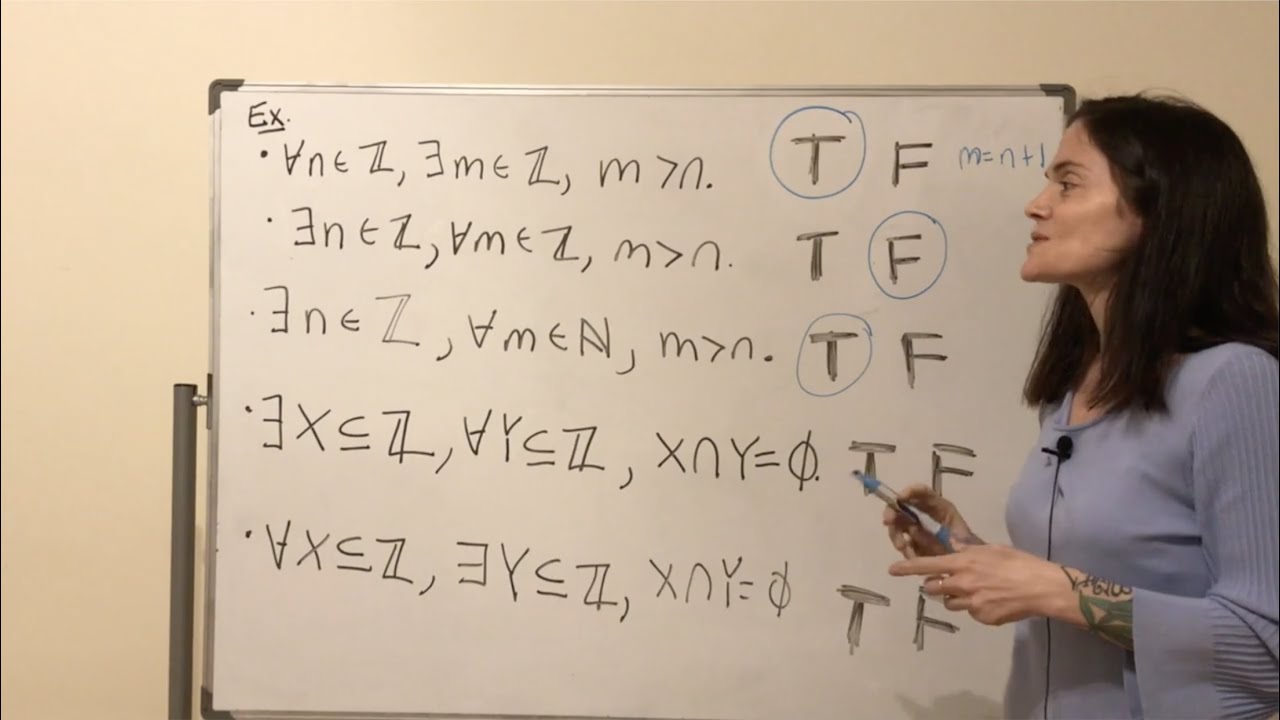 Ex.
• ∀n∈ℤ, ∃m∈ℤ, m>n. T F m=n+1
• ∃n∈ℤ, ∀m∈ℤ, m>n. T F
• ∃n∈ℤ, ∀m∈ℕ, m>n. T F
• ∃X⊆ℤ, ∀Y⊆ℤ, X∩Y=∅. T F
• ∀X⊆ℤ, ∃Y⊆ℤ, X∩Y=∅ T F